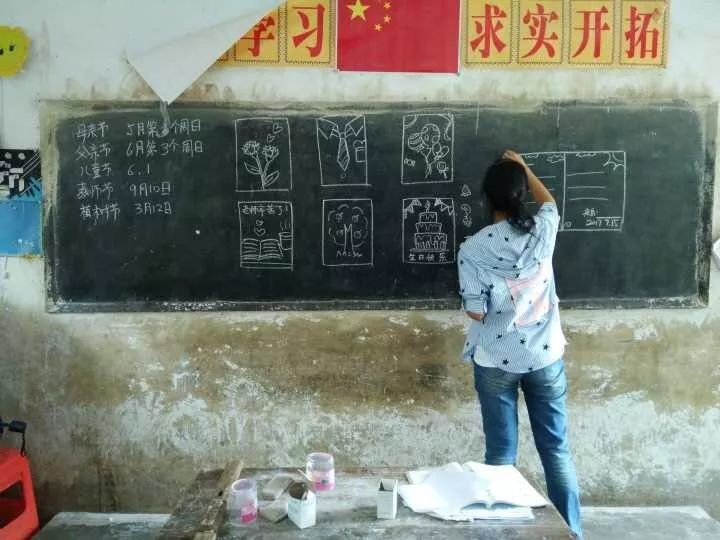 学习
求实开拓
母亲节 5月第2个周日
父亲节 6月第3个周日
儿童节 6.1
教师节 9月10日
植树节 3月12日
老师辛苦了!
生日快乐
2017.9.15